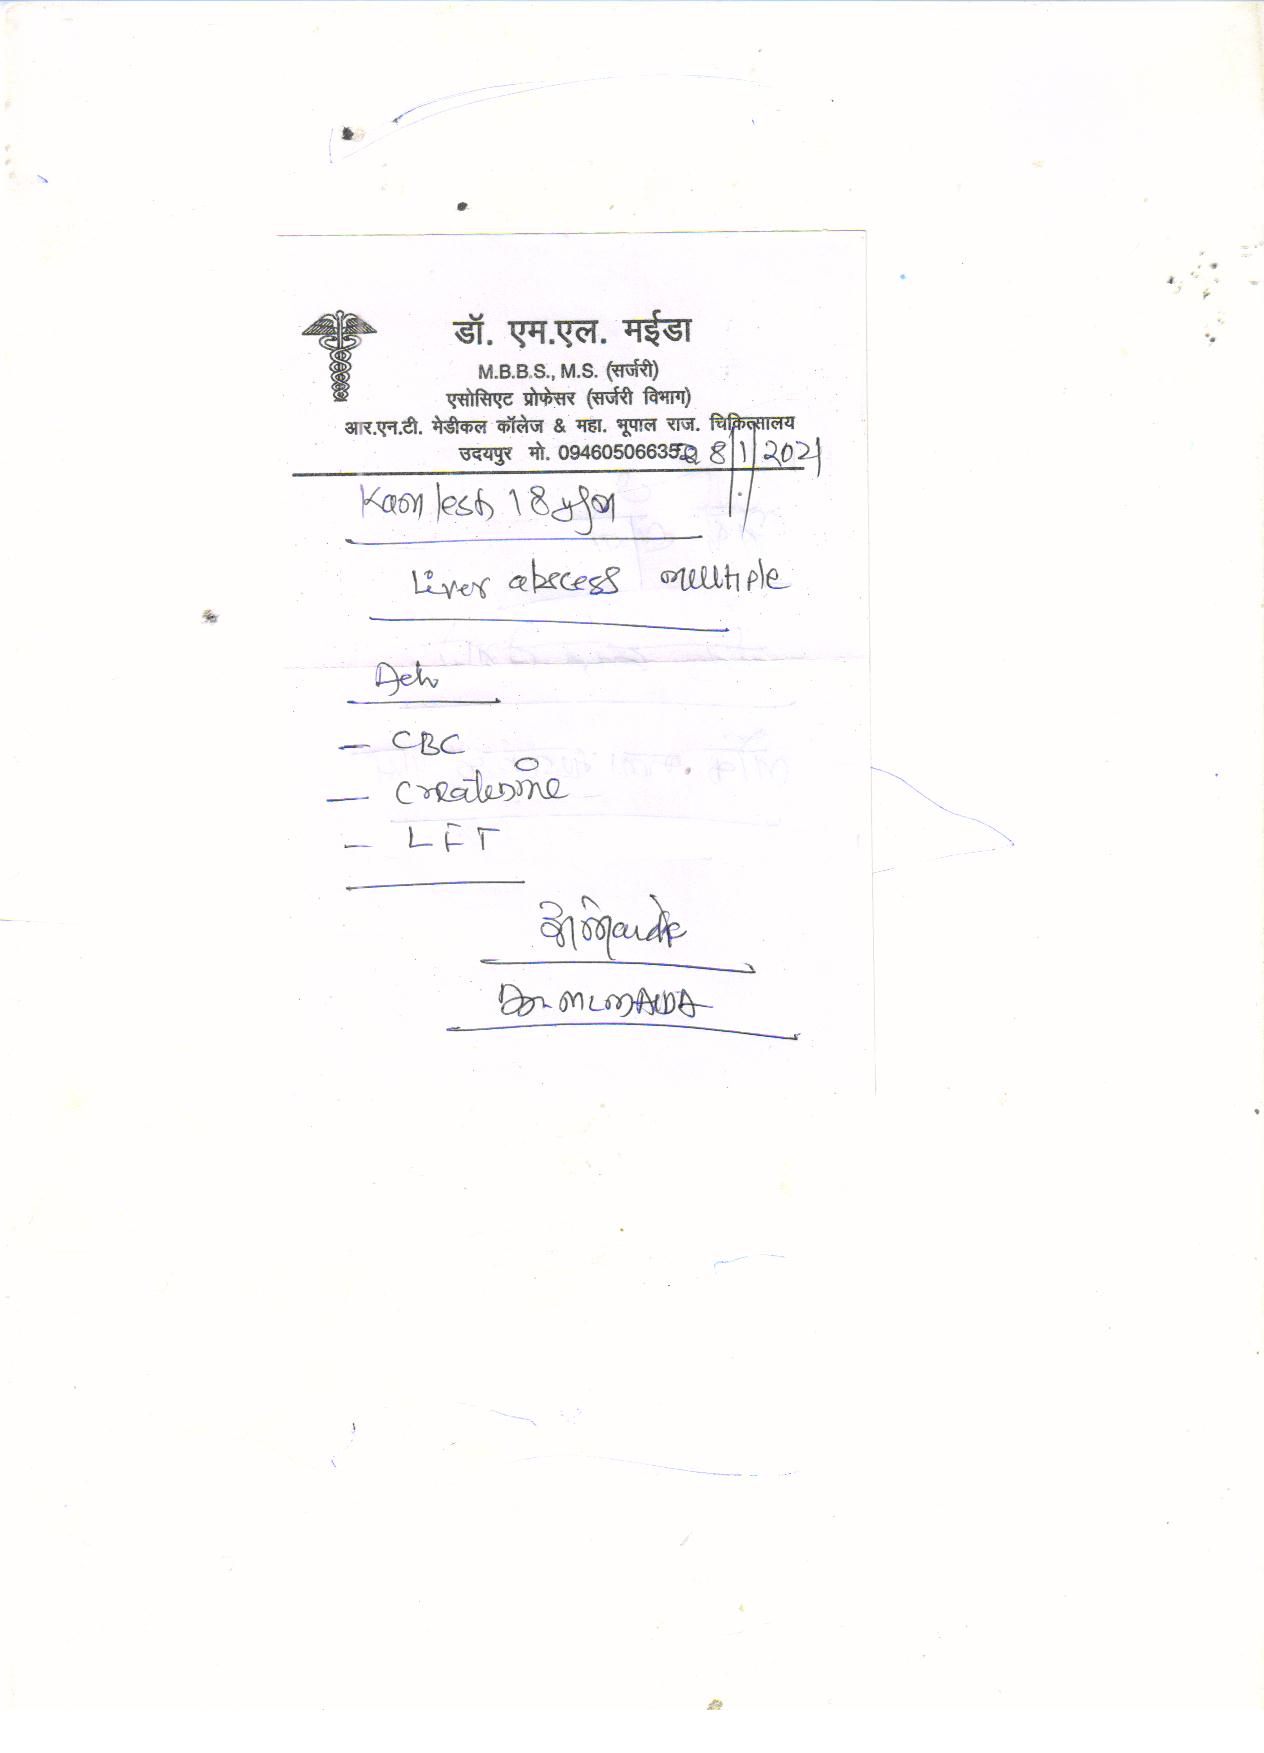 डॉ. एम.एल. मईडा
M.B.B.S., M.S. (सर्जरी)
एसोसिएट प्रोफेसर (सर्जरी विभाग)
आर.एन.टी. मेडीकल कॉलेज & महा. भूपाल राज. चिकित्सालय
उदयपुर मो. 0946050663 28/1/2021
Kamlesh 18
Liver abscess multiple
Adv
- CBC
- Createnine
- LFT
Dr. ML MAIDA